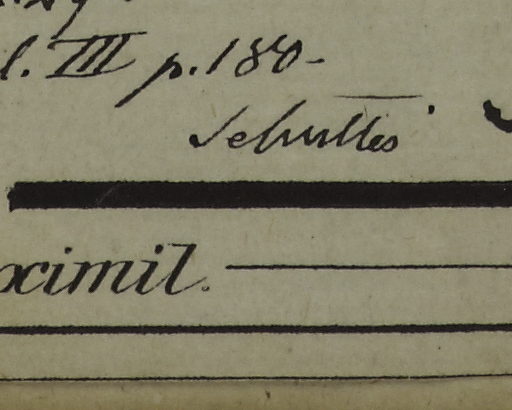 l. III p. 180-
Schultes
ximil.